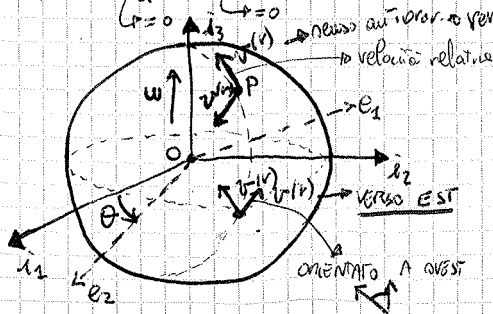 ↳=0 ↳=0
i₃
v(r) → senso antiorar. → ver
→ velocità relativa
ω
v(r)
P
e₁
O
i₂
v(r) v(r) → VERSO EST
θ
i₁
e₂
ORIENTATO A OVEST